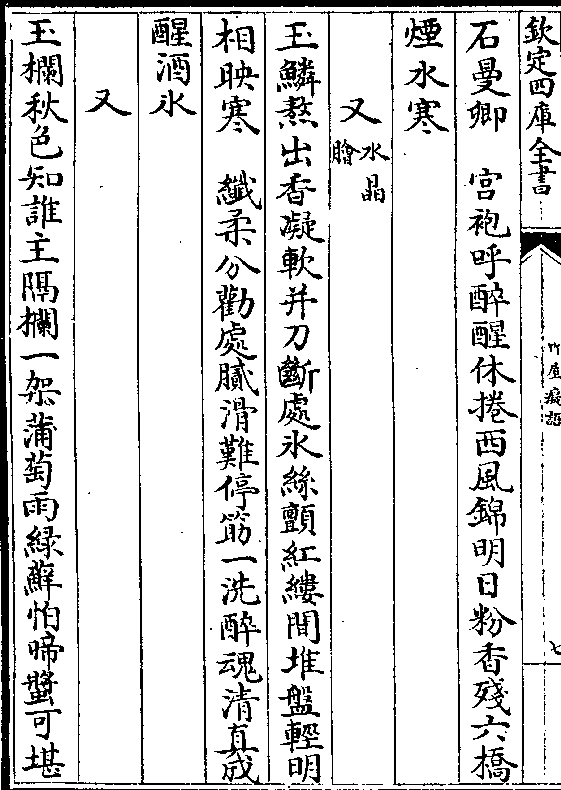 欽定四庫全書
竹屋癡語
七
石曼卿　宮袍呼醉醒休捲西風錦明日粉香殘六橋
煙水寒
又水晶膾
玉鱗熬出香凝軟并刀斷處氷絲顫紅縷間堆盤輕明
相映寒　纖柔分勸處膩滑難停筯一洗醉魂清真成
醒酒氷
又
玉欄秋色知誰主隔欄一架蒲萄雨緑蘚怕啼螿可堪